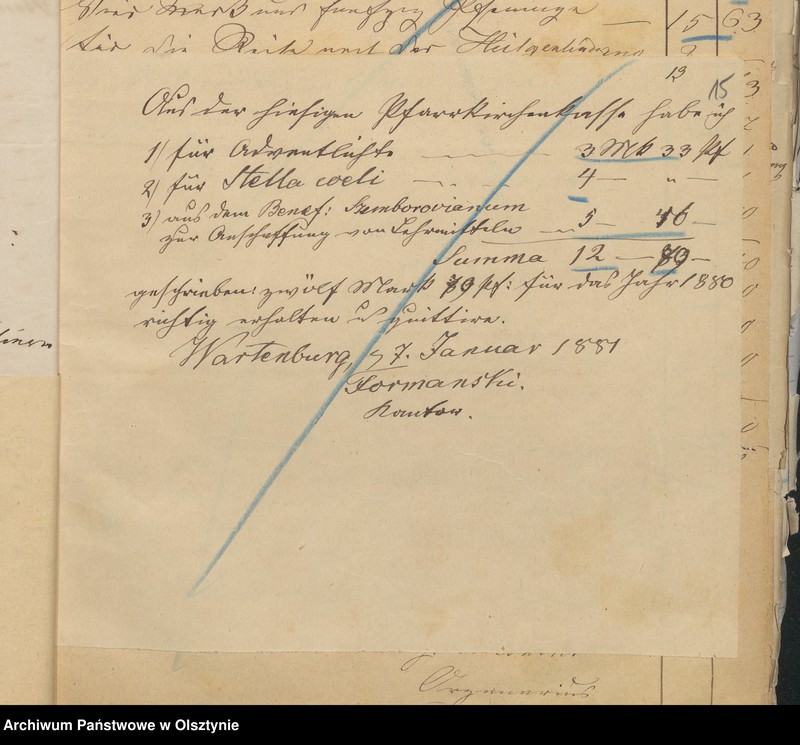 Vier Mark und fünfzig Pfennige — 15 63
für die Reise nach der
13 15
Aus der hiesigen Pfarrkirchenkasse habe ich
1) für Adventlichte — 3 Mk 33 Pf
2) für Stella coeli — 4 — " —
3) aus dem Benef: Szemborovianum
zur Anschaffung von Lehrmitteln — 5 — 46 —
Summa 12 — 79 —
geschrieben: zwölf Mark 79 Pf: für das Jahr 1880
richtig erhalten u quittire.
Wartenburg, d 7. Januar 1881
Formanski.
Kantor.
Organarius
Archiwum Państwowe w Olsztynie